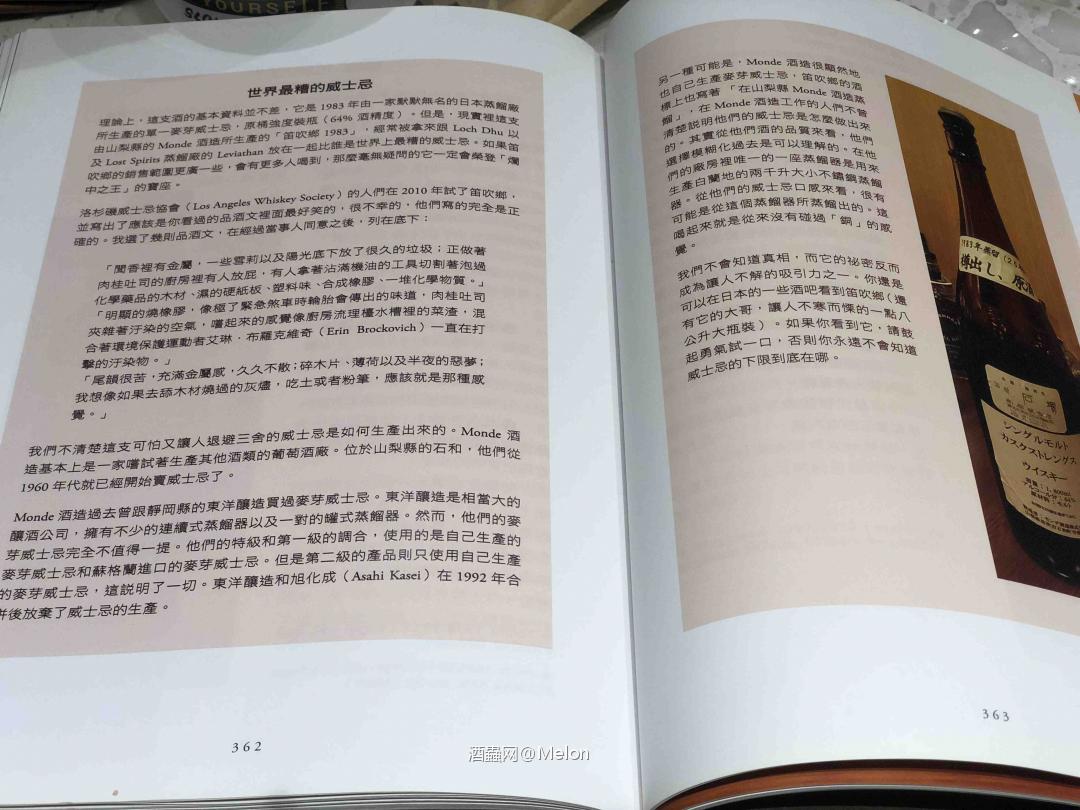 YOURSELF
世界最糟的威士忌
理論上，這支酒的基本資料並不差，它是 1983 年由一家默默無名的日本蒸餾廠
所生產的單一麥芽威士忌，原桶強度裝瓶（64% 酒精度）。但是，現實裡這支
由山梨縣的 Monde 酒造所生產的「笛吹鄉 1983」，經常被拿來跟 Loch Dhu 以
及 Lost Spirits 蒸餾廠的 Leviathan 放在一起比誰是世界上最糟的威士忌。如果笛
吹鄉的銷售範圍更廣一些，會有更多人喝到，那麼毫無疑問的它一定會榮登「爛
中之王」的寶座。
洛杉磯威士忌協會（Los Angeles Whiskey Society）的人們在 2010 年試了笛吹鄉，
並寫出了應該是你看過的品酒文裡面最好笑的，很不幸的，他們寫的完全是正
確的。我選了幾則品酒文，在經過當事人同意之後，列在底下：
「聞香裡有金屬，一些雪莉以及陽光底下放了很久的垃圾；正做著
肉桂吐司的廚房裡有人放屁，有人拿著沾滿機油的工具切割著泡過
化學藥品的木材、濕的硬紙板、塑料味、合成橡膠、一堆化學物質。」
「明顯的燒橡膠，像極了緊急煞車時輪胎會傳出的味道，肉桂吐司
夾雜著汙染的空氣，嚐起來的感覺像廚房流理檯水槽裡的菜渣，混
合著環境保護運動者艾琳．布羅克維奇（Erin Brockovich）一直在打
擊的汙染物。」
「尾韻很苦，充滿金屬感，久久不散；碎木片、薄荷以及半夜的惡夢；
我想像如果去舔木材燒過的灰燼，吃土或者粉筆，應該就是那種感
覺。」
我們不清楚這支可怕又讓人退避三舍的威士忌是如何生產出來的。Monde 酒
造基本上是一家嘗試著生產其他酒類的葡萄酒廠。位於山梨縣的石和，他們從
1960 年代就已經開始賣威士忌了。
Monde 酒造過去曾跟靜岡縣的東洋釀造買過麥芽威士忌。東洋釀造是相當大的
釀酒公司，擁有不少的連續式蒸餾器以及一對的罐式蒸餾器。然而，他們的麥
芽威士忌完全不值得一提。他們的特級和第一級的調合，使用的是自己生產的
麥芽威士忌和蘇格蘭進口的麥芽威士忌。但是第二級的產品則只使用自己生產
的麥芽威士忌，這說明了一切。東洋釀造和旭化成（Asahi Kasei）在 1992 年合
併後放棄了威士忌的生產。
362
另一種可能是，Monde 酒造很顯然地
也自己生產麥芽威士忌，笛吹鄉的酒
標上也寫著「在山梨縣 Monde 酒造蒸
餾」，在 Monde 酒造工作的人們不曾
清楚説明他們的威士忌是怎麼做出來
的。其實從他們酒的品質來看，他們
選擇模糊化過去是可以理解的。在他
們的廠房裡唯一的一座蒸餾器是用來
生產白蘭地的兩千升大小不鏽鋼蒸餾
器。從他們的威士忌口感來看，很有
可能是從這個蒸餾器所蒸餾出的。這
喝起來就是從來沒有碰過「銅」的感
覺。
我們不會知道真相，而它的祕密反而
成為讓人不解的吸引力之一。你還是
可以在日本的一些酒吧看到笛吹鄉（還
有它的大哥，讓人不寒而慄的一點八
公升大瓶裝）。如果你看到它，請鼓
起勇氣試一口，否則你永遠不會知道
威士忌的下限到底在哪。
1983年蒸留
樽出し、原酒
シングルモルト
カスクストレングス
ウイスキー
363
酒蟲网@Melon